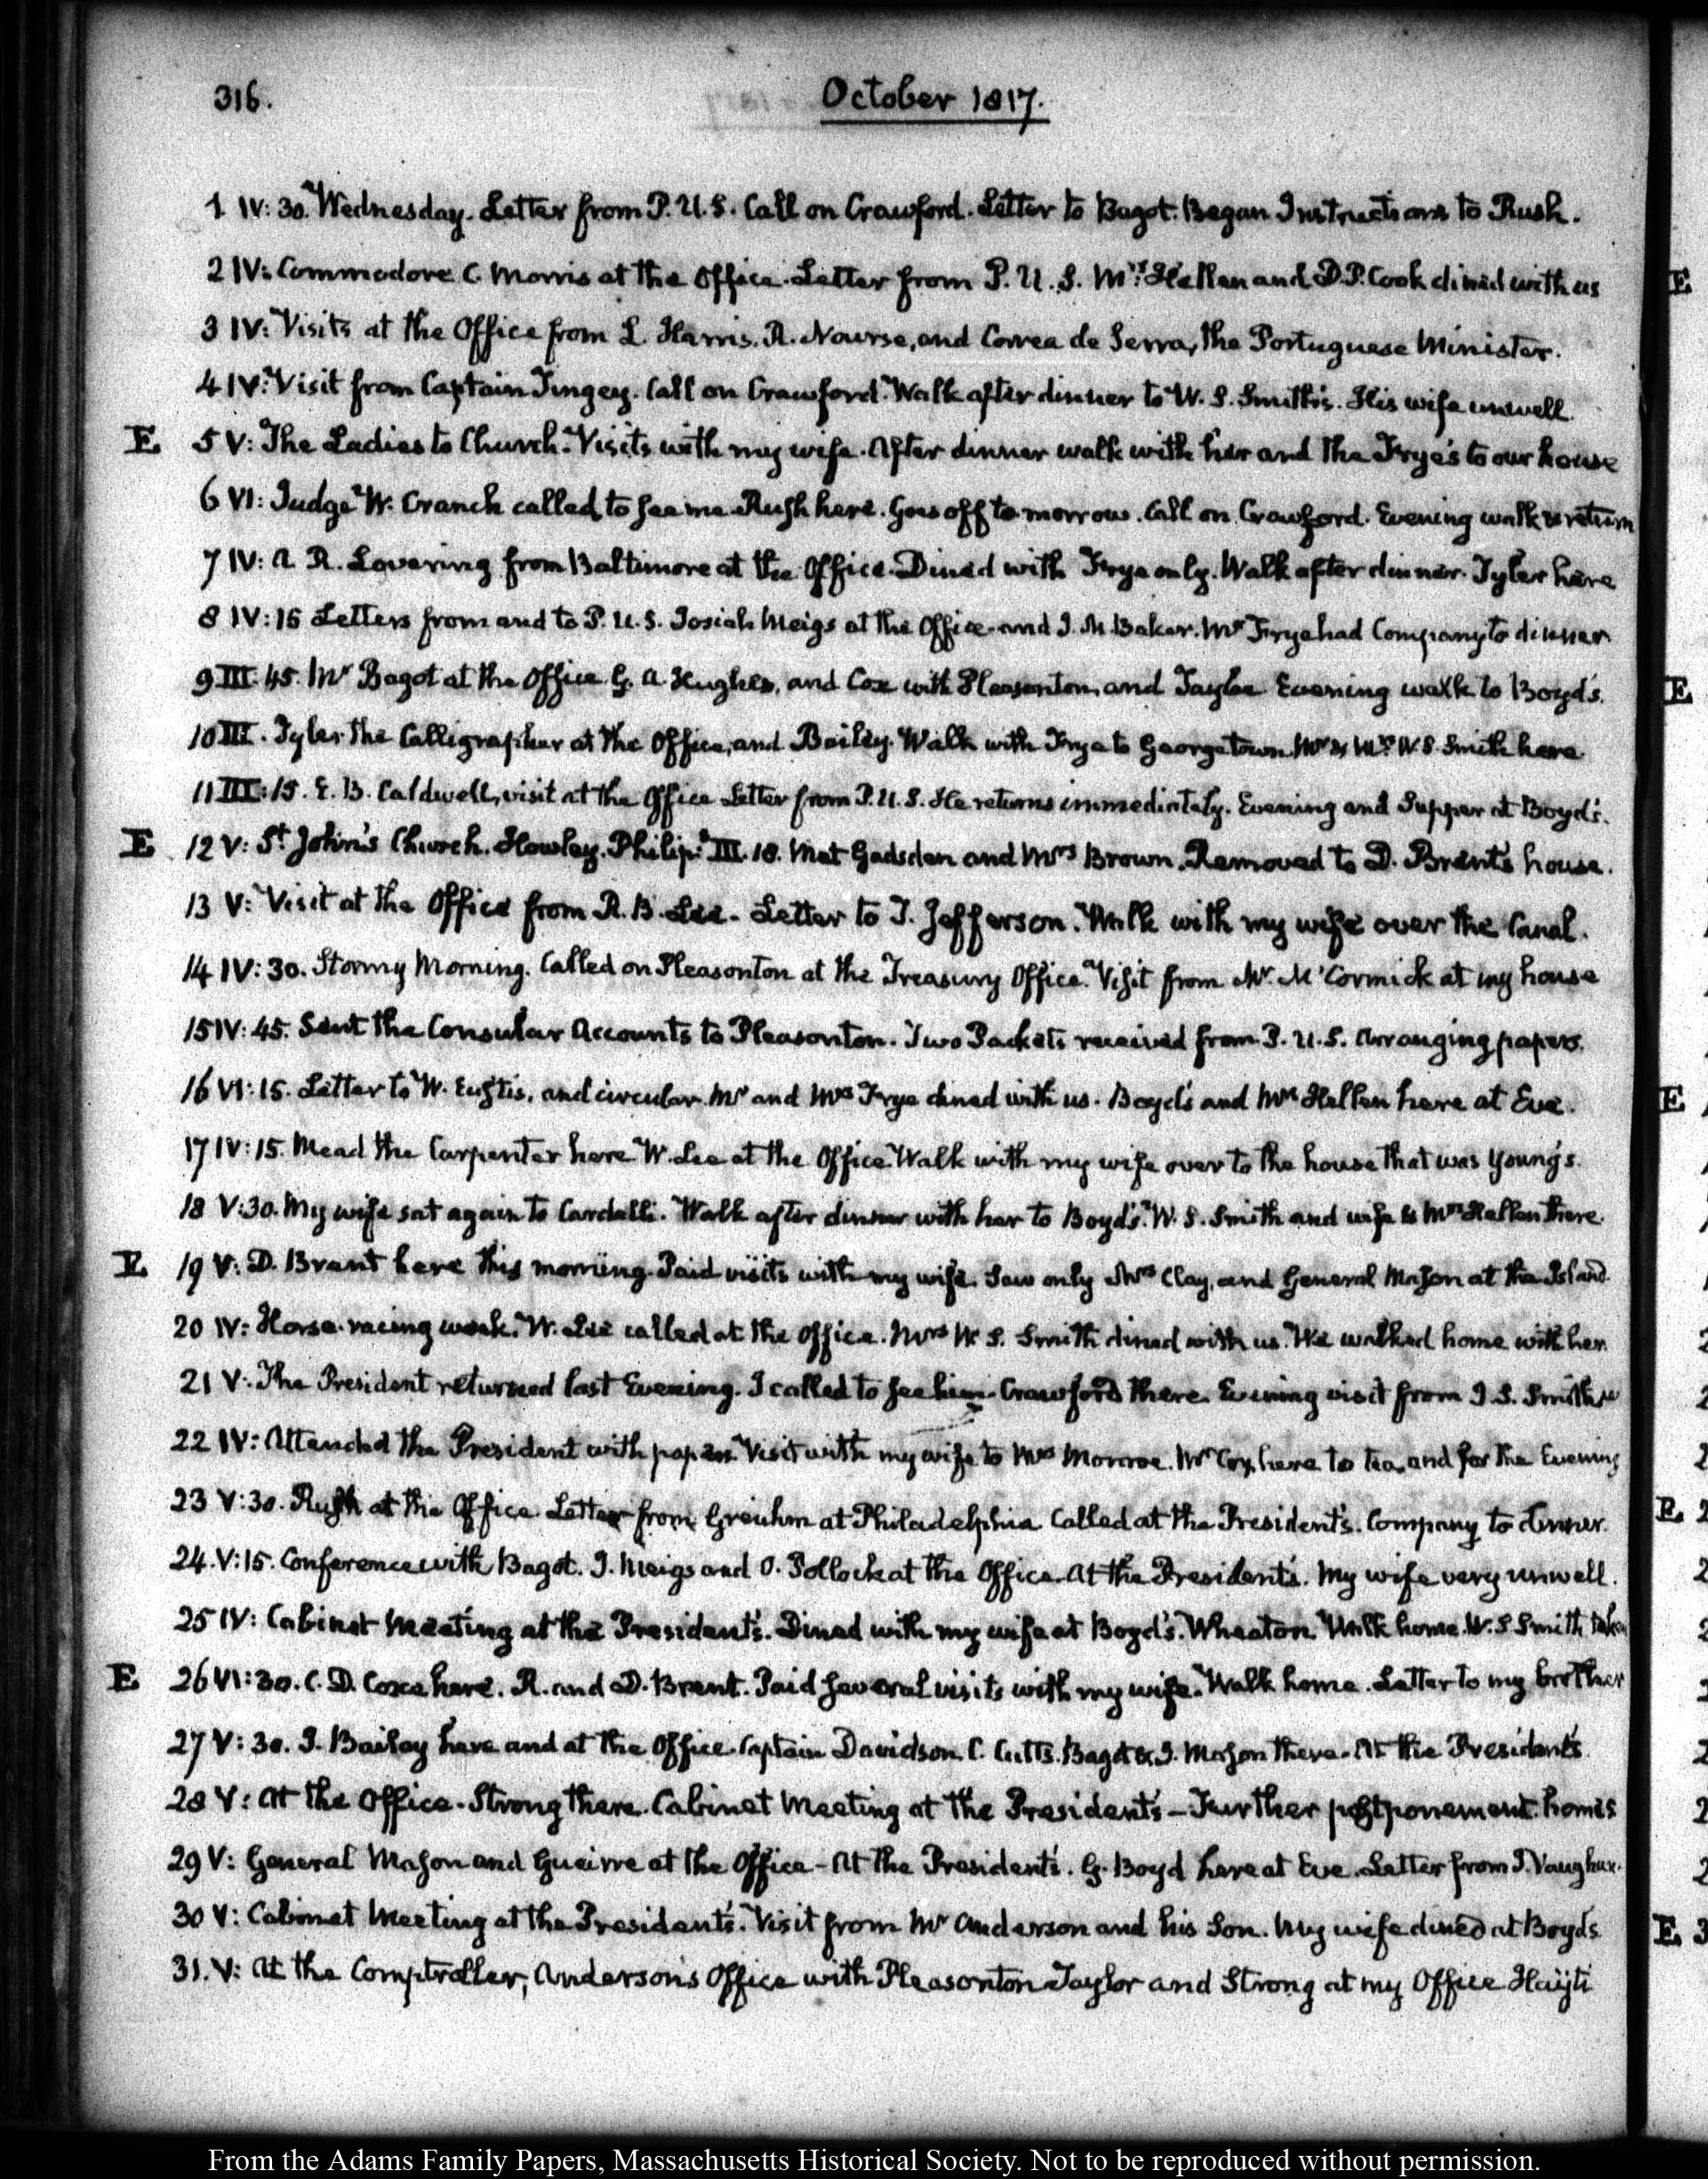 316.
October 1817.
1 IV: 30. Wednesday. Letter from P. U. S. Call on Crawford. Letter to Bagot. Began Instructions to Rush.
2 IV: Commodore C. Morris at the Office. Letter from P. U. S. Mrs. Hellen and D. P. Cook dined with us
3 IV: Visits at the Office from L. Harris. R. Nourse, and Correa de Serra, the Portuguese Minister.
4 IV: Visit from Captain Tingey. Call on Crawford. Walk after dinner to W. S. Smith's. His wife unwell.
E 5 V: The Ladies to Church. Visits with my wife. After dinner walk with her and the Frye's to our house
6 VI: Judge W. Cranch called to see me. Rush here. Goes off to-morrow. Call on Crawford. Evening walk & return
7 IV: A. R. Lovering from Baltimore at the Office. Dined with Frye only. Walk after dinner. Tyler here
8 IV: 15 Letters from and to P. U. S. Josiah Meigs at the Office and J. M. Baker. Mr Frye had Company to dinner
9 III. 45. Mr Bagot at the Office G. A. Hughes, and Cox with Pleasonton, and Taylor Evening walk to Boyd's.
10 III. Tyler the Calligrapher at the Office, and Bailey. Walk with Frye to Georgetown. Mr & Mrs W. S. Smith here
11 III: 15. E. B. Caldwell, visit at the Office Letter from P. U. S. He returns immediately. Evening and Supper at Boyd's.
E 12 V: St John's Church. Hawley. Philip. III. 18. Met Gadsden and Mrs Brown. Removed to D. Brent's house.
13 V: Visit at the Office from R. B. Lee. Letter to T. Jefferson. Walk with my wife over the Canal.
14 IV: 30. Stormy Morning. Called on Pleasonton at the Treasury Office. Visit from Mr. M'Cormick at my house
15 IV: 45. Sent the Consular Accounts to Pleasonton. Two Packets received from P. U. S. Arranging papers.
16 VI: 15. Letter to W. Eustis, and circular. Mr and Mrs Frye dined with us. Boyd's and Mrs Hellen here at Eve.
17 IV: 15. Mead the Carpenter here W. Lee at the Office Walk with my wife over to the house that was Young's.
18 V: 30. My wife sat again to Cardelli. Walk after dinner with her to Boyd's. W. S. Smith and wife & Mrs Hellen there.
E 19 V: D. Brent here this morning. Paid visits with my wife. Saw only Mrs Clay, and General Mason at the Island.
20 IV: Horse-racing week. W. Lee called at the Office. Mrs W. S. Smith dined with us. We walked home with her.
21 V: The President returned last Evening. I called to see him. Crawford there. Evening visit from J. S. Smith
22 IV: Attended the President with papers. Visit with my wife to Mrs Monroe. Mr Cox here to tea, and for the Evening
23 V: 30. Rush at the Office Letter from Greuhm at Philadelphia Called at the President's. Company to dinner.
24. V: 15. Conference with Bagot. J. Meigs and O. Pollock at the Office. At the President's. My wife very unwell.
25 IV: Cabinet Meeting at the President's. Dined with my wife at Boyd's. Wheaton. Walk home. W. S Smith taken
E 26 VI: 30. C. D. Coxe here. R. and D. Brent. Paid several visits with my wife. Walk home. Letter to my brother
27 V: 30. J. Bailey here and at the Office Captain Davidson. C. Cutts. Bagot & J. Mason there. At the President's
28 V: At the Office. Strong there. Cabinet Meeting at the President's — Further postponement. home
29 V: General Mason and at the Office — At the President's. G. Boyd here at Eve. Letter from J. Vaughan.
30 V: Cabinet Meeting at the President's. Visit from Mr Anderson and his Son. My wife dined at Boyds
31. V: At the Comptroller, Anderson's Office with Pleasonton Taylor and Strong at my Office Hayti
From the Adams Family Papers, Massachusetts Historical Society. Not to be reproduced without permission.